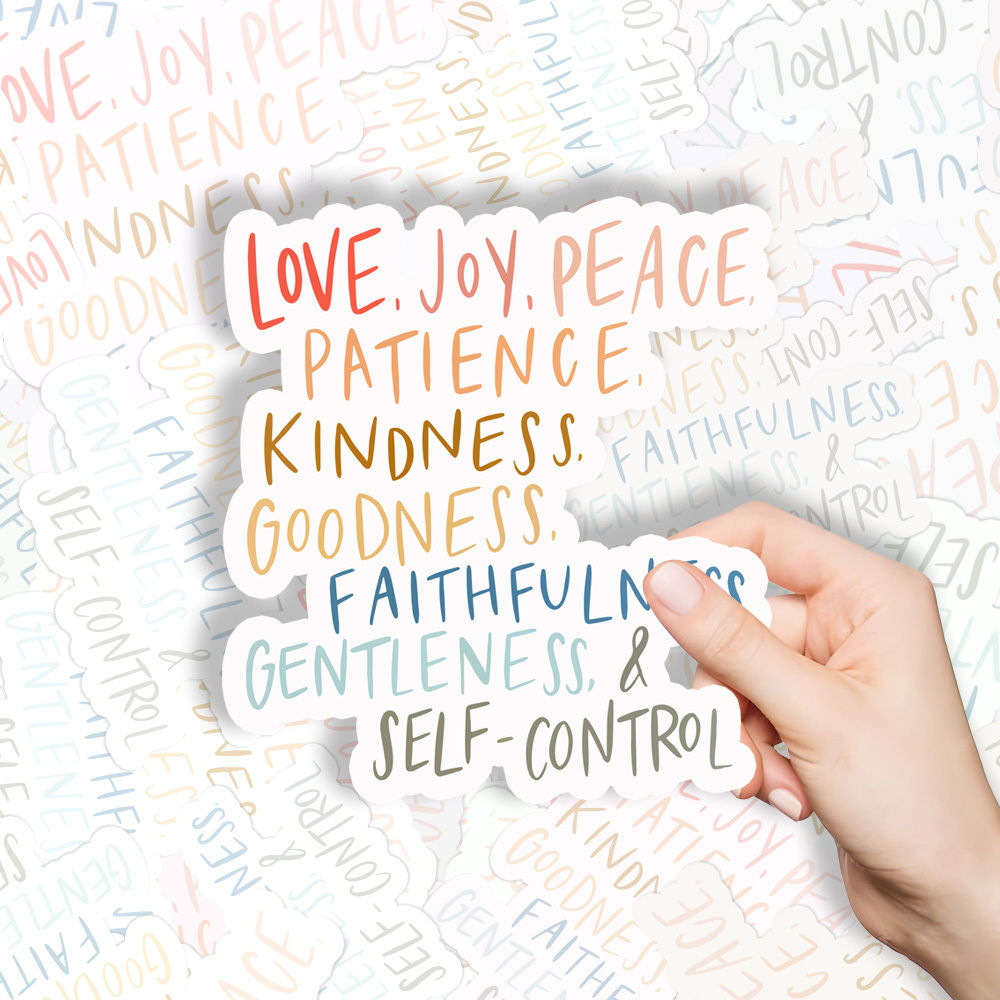 LOVE, JOY, PEACE,
PATIENCE,
KINDNESS,
GOODNESS,
FAITHFULNESS
GENTLENESS, &
SELF-CONTROL